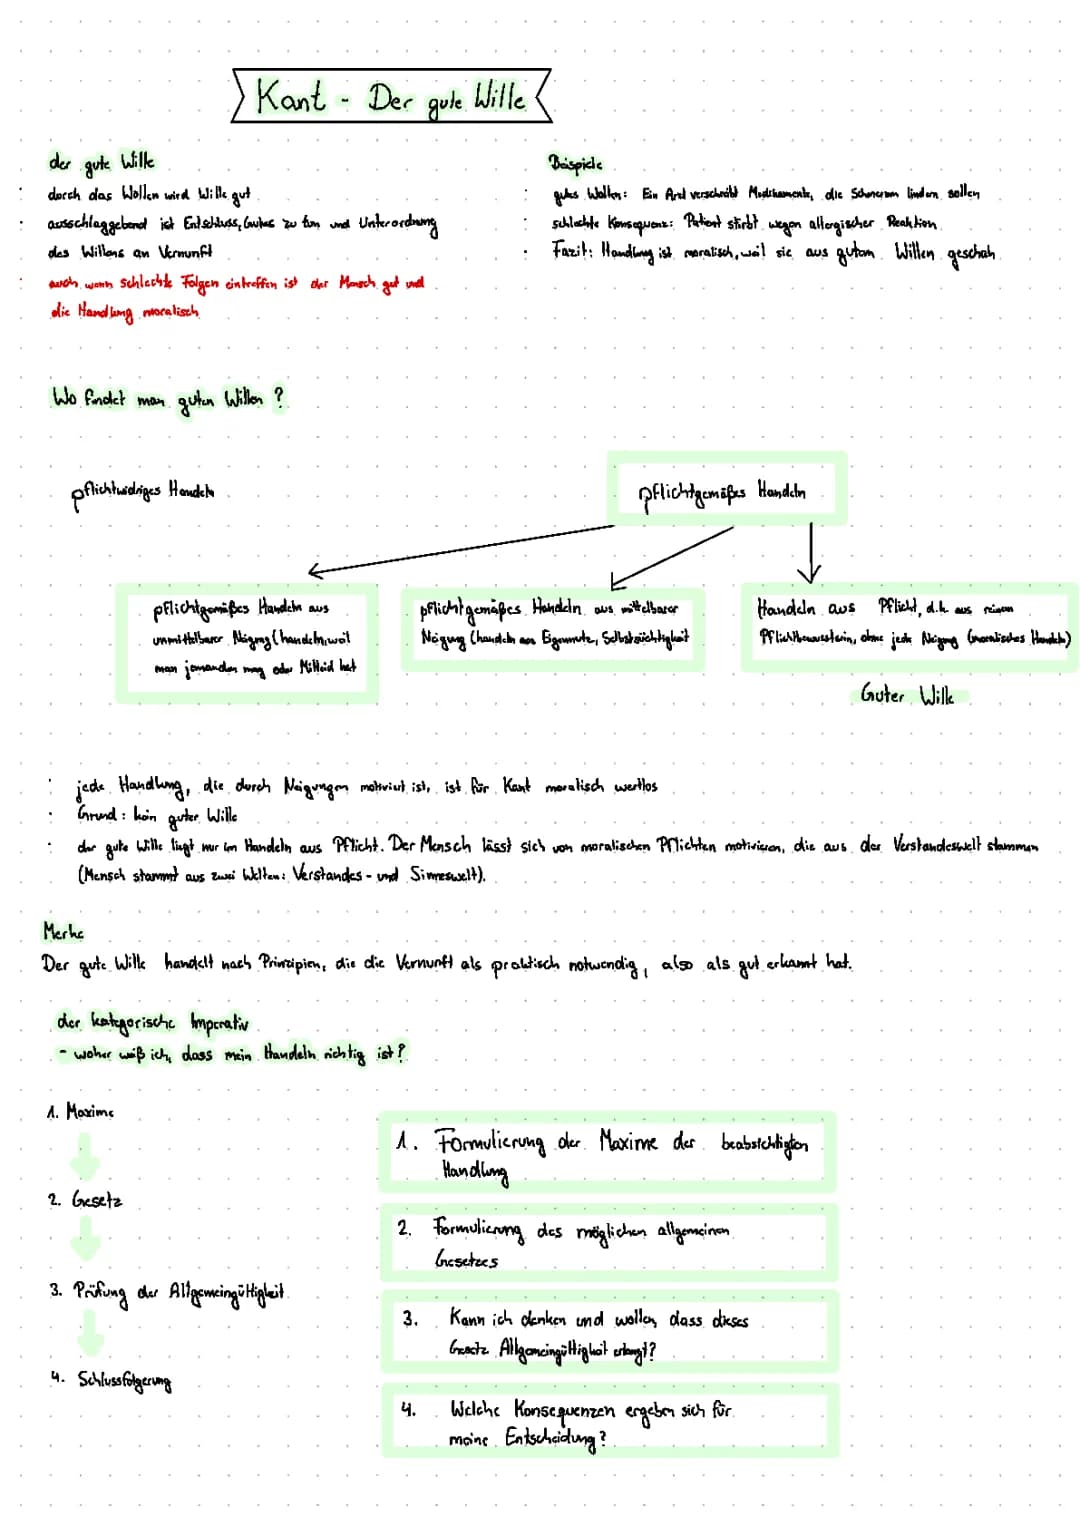 Kant - Der gute Wille
der gute Wille
durch das Wollen wird Wille gut
ausschlaggebend ist Entschluss, Gutes zu tun und Unterordnung
des Willens an Vernunft
auch wenn schlechte Folgen eintreffen ist der Mensch gut und
die Handlung moralisch
Beispiele
gutes Wollen: Ein Arzt verschreibt Medikamente, die Schmerzen lindern sollen
schlechte Konsequenz: Patient stirbt wegen allergischer Reaktion
Fazit: Handlung ist moralisch, weil sie aus gutem Willen geschah
Wo findet man guten Willen?
pflichtwidriges Handeln
pflichtgemäßes Handeln
pflichtgemäßes Handeln aus
unmittelbarer Neigung (handeln, weil
man jemanden mag oder Mitleid hat
pflichtgemäßes Handeln aus mittelbarer
Neigung (handeln aus Eigennutz, Selbstsüchtigkeit
Handeln aus Pflicht, d.h. aus reinem
Pflichtbewusstsein, ohne jede Neigung (moralisches Handeln)
Guter Wille
jede Handlung, die durch Neigungen motiviert ist, ist für Kant moralisch wertlos
Grund: kein guter Wille
der gute Wille liegt nur im Handeln aus Pflicht. Der Mensch lässt sich von moralischen Pflichten motivieren, die aus der Verstandeswelt stammen
(Mensch stammt aus zwei Welten: Verstandes- und Sinneswelt).
Merke
Der gute Wille handelt nach Prinzipien, die die Vernunft als praktisch notwendig, also als gut erkannt hat.
der kategorische Imperativ
- woher weiß ich, dass mein Handeln richtig ist?
1. Maxime
2. Gesetz
3. Prüfung der Allgemeingültigkeit
4. Schlussfolgerung
1. Formulierung der Maxime der beabsichtigten
Handlung
2. Formulierung des möglichen allgemeinen
Gesetzes
3. Kann ich denken und wollen, dass dieses
Gesetz Allgemeingültigkeit erlangt?
4. Welche Konsequenzen ergeben sich für
meine Entscheidung?